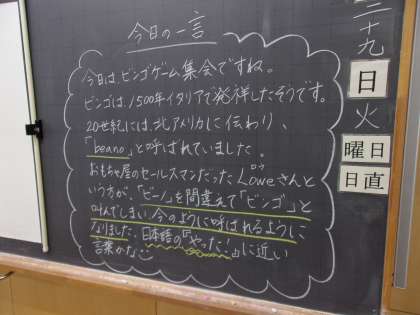 今日の一言
今日は、ビンゴゲーム集会ですね。
ビンゴは、1500年イタリアで発祥したそうです。
20世紀には、北アメリカに伝わり、
「beano」と呼ばれていました。
おもちゃ屋のセールスマンだったLoweさんと
ロウ
いう方が、「ビーノ」を間違えて「ビンゴ」と
叫んでしまい今のように呼ばれるように
なりました。日本語の「やったー!」に近い
言葉かな
二十九
日
火
曜日
日直